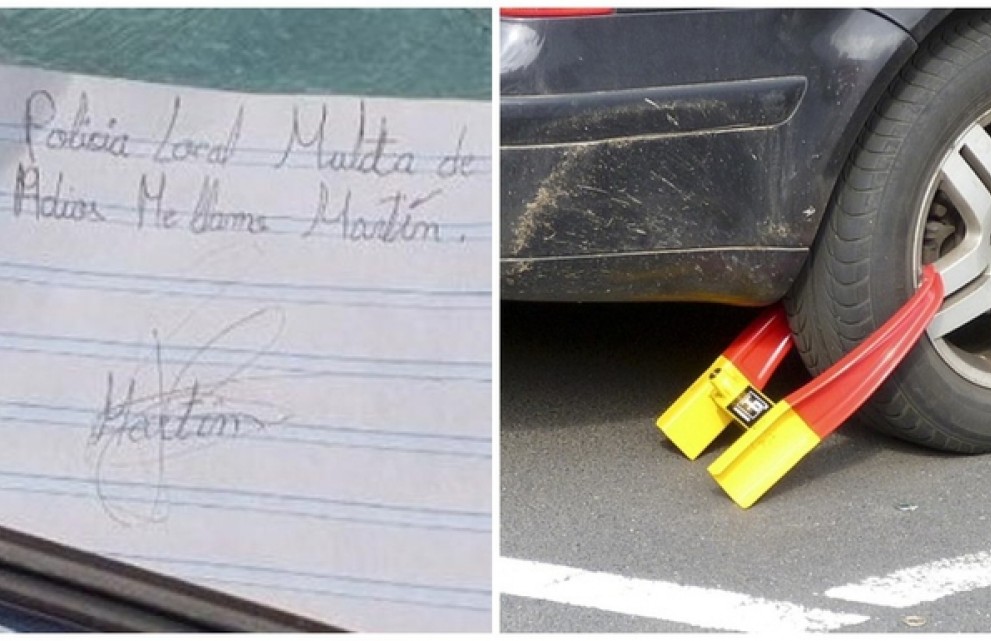 Policia Local Multa de
Adios Me llamo Martín.
Martin